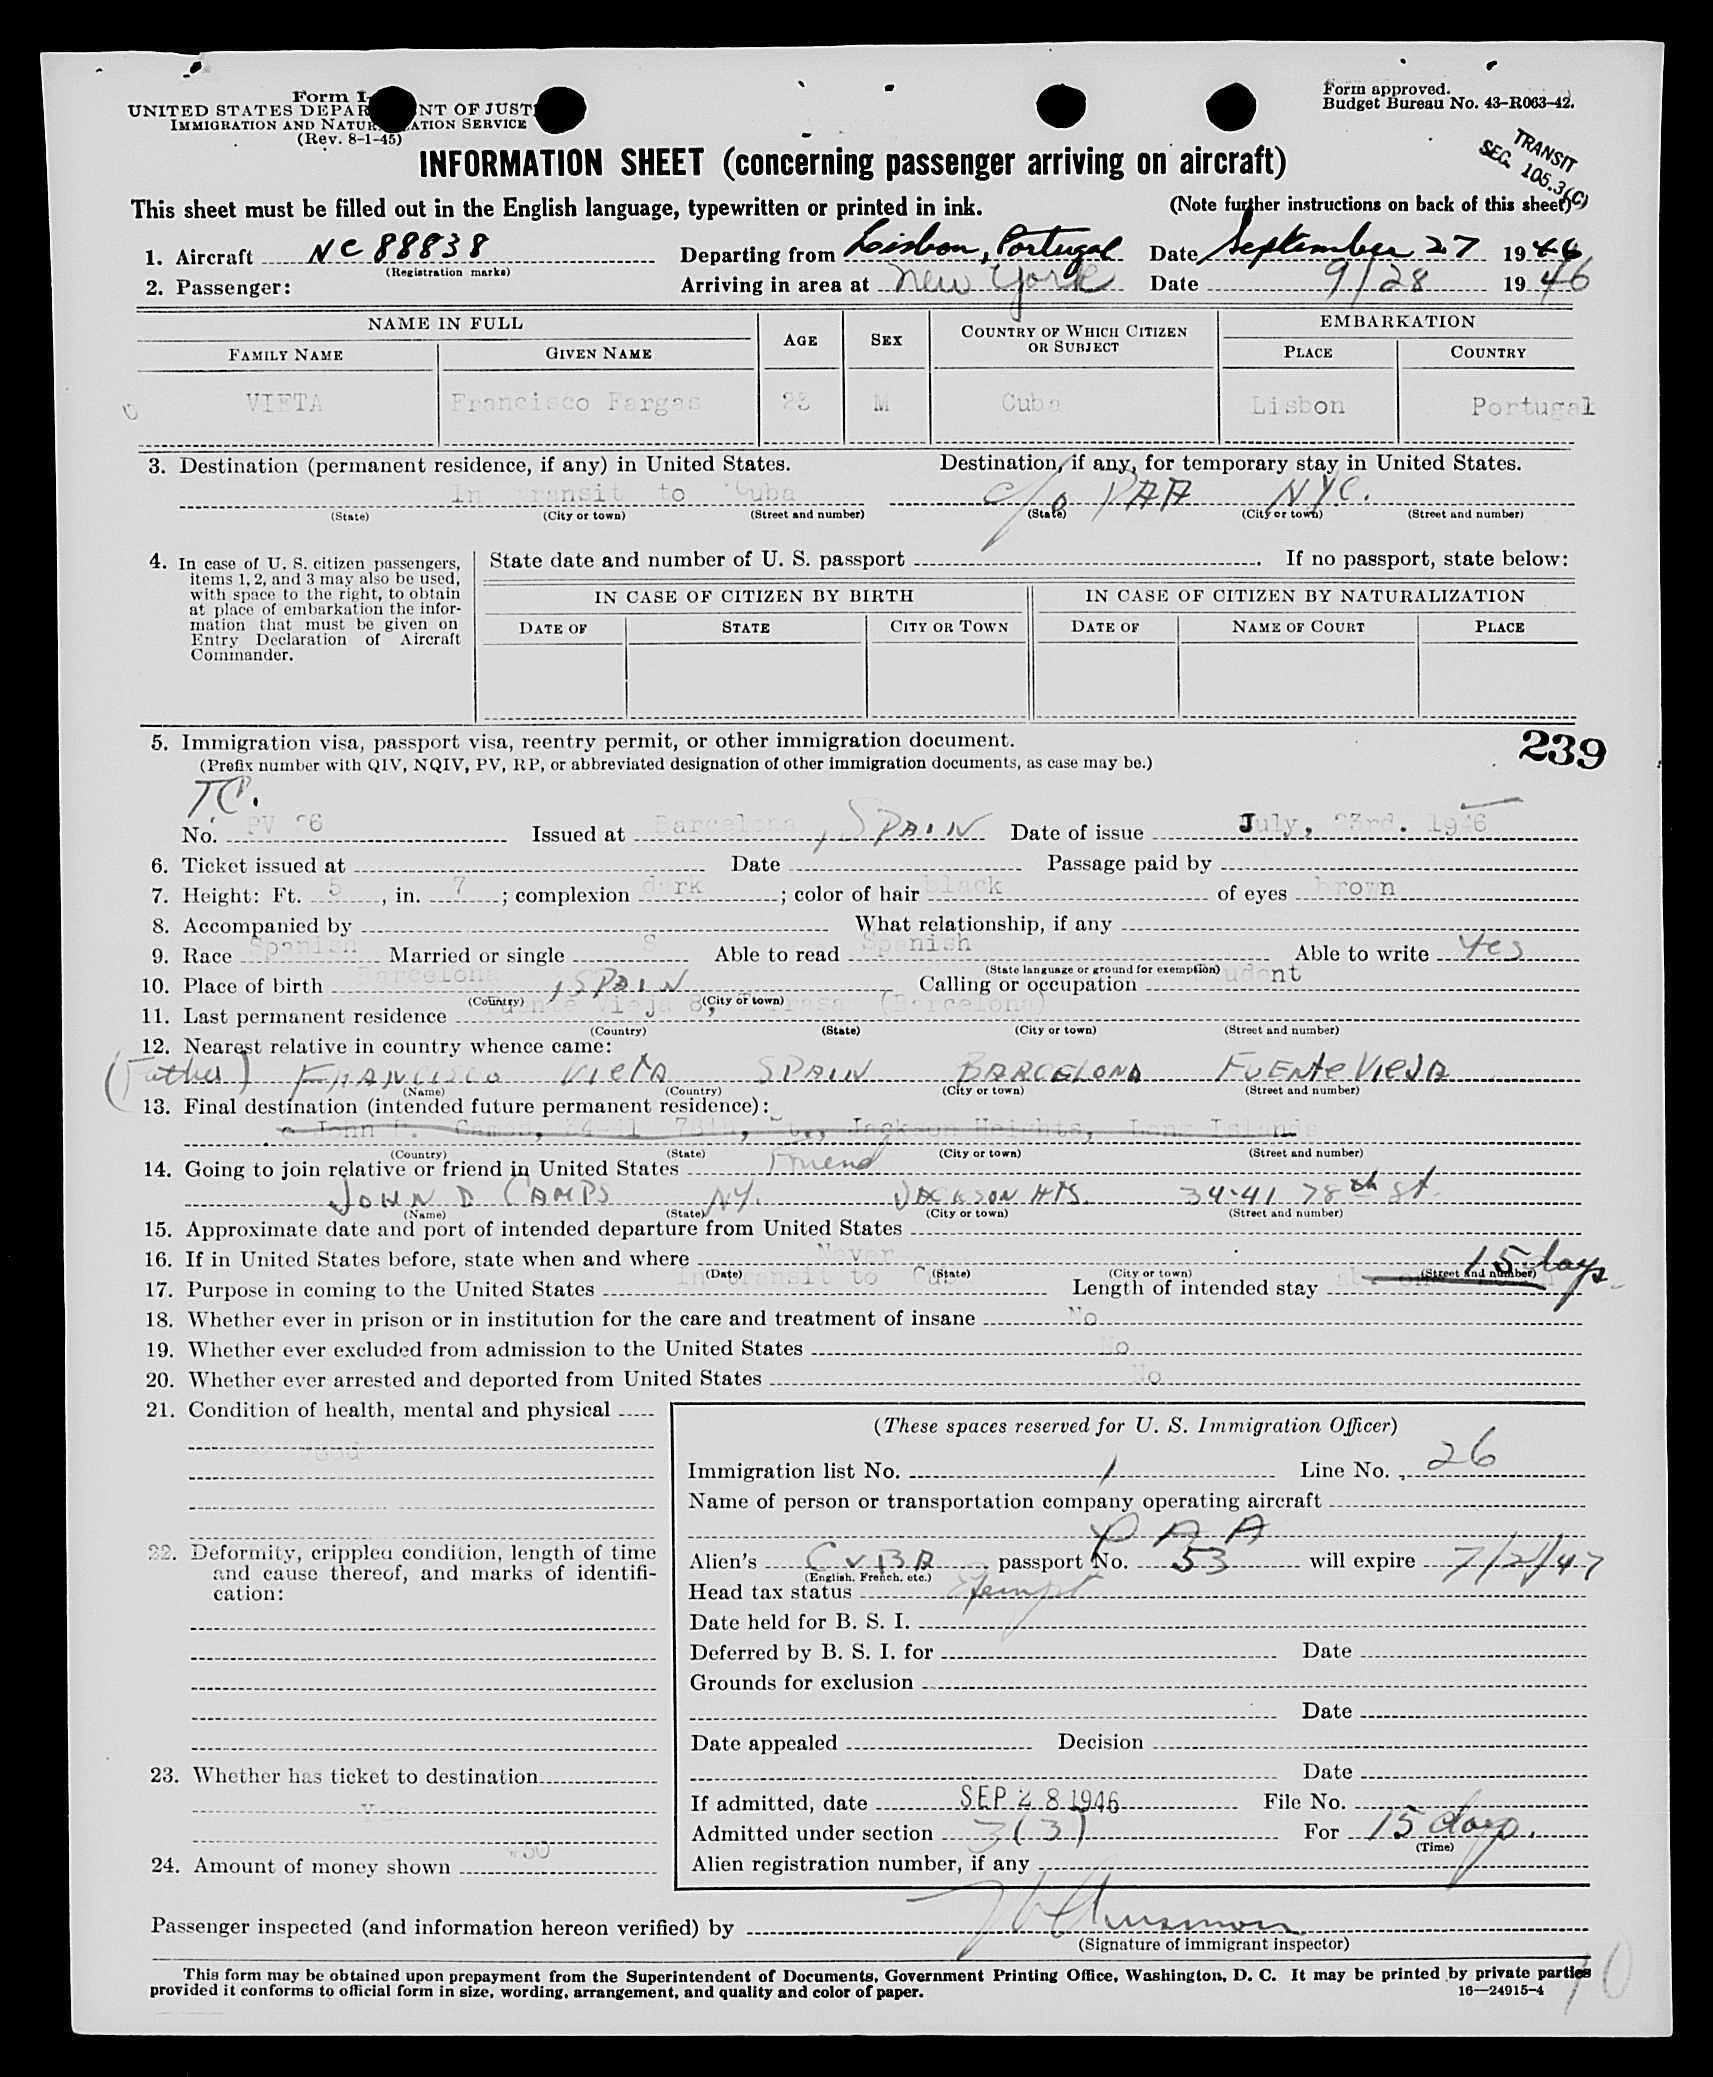 Form I-
UNITED STATES DEPAR NT OF JUST
IMMIGRATION AND NATUR ATION SERVICE
(Rev. 8-1-45)
Form approved.
Budget Bureau No. 43-R063-42.
TRANSIT
SEC. 105.3(C)
INFORMATION SHEET (concerning passenger arriving on aircraft)
This sheet must be filled out in the English language, typewritten or printed in ink. (Note further instructions on back of this sheet)
1. Aircraft NC 88838 Departing from Lisbon, Portugal Date September 27 1946
(Registration marks)
2. Passenger: Arriving in area at New York Date 9/28 1946
NAME IN FULL AGE SEX COUNTRY OF WHICH CITIZEN OR SUBJECT EMBARKATION
FAMILY NAME GIVEN NAME PLACE COUNTRY
VIETA Francisco Fargas 23 M Cuba Lisbon Portugal
3. Destination (permanent residence, if any) in United States. Destination, if any, for temporary stay in United States.
In transit to Cuba c/o PAA NYC.
(State) (City or town) (Street and number) (State) (City or town) (Street and number)
4. In case of U. S. citizen passengers, items 1, 2, and 3 may also be used, with space to the right, to obtain at place of embarkation the information that must be given on Entry Declaration of Aircraft Commander.
State date and number of U. S. passport . If no passport, state below:
IN CASE OF CITIZEN BY BIRTH IN CASE OF CITIZEN BY NATURALIZATION
DATE OF STATE CITY OR TOWN DATE OF NAME OF COURT PLACE
5. Immigration visa, passport visa, reentry permit, or other immigration document.
239
(Prefix number with QIV, NQIV, PV, RP, or abbreviated designation of other immigration documents, as case may be.)
TC.
No. PV 26 Issued at Barcelona, SPAIN Date of issue July, 23rd. 1946
6. Ticket issued at Date Passage paid by
7. Height: Ft. 5, in. 7; complexion dark; color of hair black of eyes brown
8. Accompanied by What relationship, if any
9. Race Spanish Married or single S Able to read Spanish Able to write Yes
(State language or ground for exemption)
10. Place of birth Barcelona, SPAIN Calling or occupation Student
(Country) (City or town)
11. Last permanent residence Fuente Vieja 8, Tarrasa (Barcelona)
(Country) (State) (City or town) (Street and number)
12. Nearest relative in country whence came:
(Father) FRANCISCO VIETA SPAIN BARCELONA FUENTE VIEJA
(Name) (Country) (City or town) (Street and number)
13. Final destination (intended future permanent residence):
John Camps, 34-41 78th, St., Jackson Heights, Long Islands
(Country) (State) (City or town) (Street and number)
14. Going to join relative or friend in United States Friend
JOHN D CAMPS NY. JACKSON HTS. 34-41 78th St.
(Name) (State) (City or town) (Street and number)
15. Approximate date and port of intended departure from United States
16. If in United States before, state when and where Never
(Date) (State) (City or town) (Street and number)
17. Purpose in coming to the United States In transit to Cuba Length of intended stay 15 days
18. Whether ever in prison or in institution for the care and treatment of insane No
19. Whether ever excluded from admission to the United States No
20. Whether ever arrested and deported from United States No
21. Condition of health, mental and physical
Good
22. Deformity, crippled condition, length of time and cause thereof, and marks of identification:
23. Whether has ticket to destination
Yes
24. Amount of money shown $50
(These spaces reserved for U. S. Immigration Officer)
Immigration list No. 1 Line No. 26
Name of person or transportation company operating aircraft
PAA
Alien's CUBA passport No. 53 will expire 7/21/47
(English, French, etc.)
Head tax status Exempt
Date held for B. S. I.
Deferred by B. S. I. for Date
Grounds for exclusion
Date
Date appealed Decision
Date
If admitted, date SEP 28 1946 File No.
Admitted under section 3(3) For 15 days.
(Time)
Alien registration number, if any
Passenger inspected (and information hereon verified) by
(Signature of immigrant inspector)
This form may be obtained upon prepayment from the Superintendent of Documents, Government Printing Office, Washington, D. C. It may be printed by private parties
provided it conforms to official form in size, wording, arrangement, and quality and color of paper.
16—24915-4